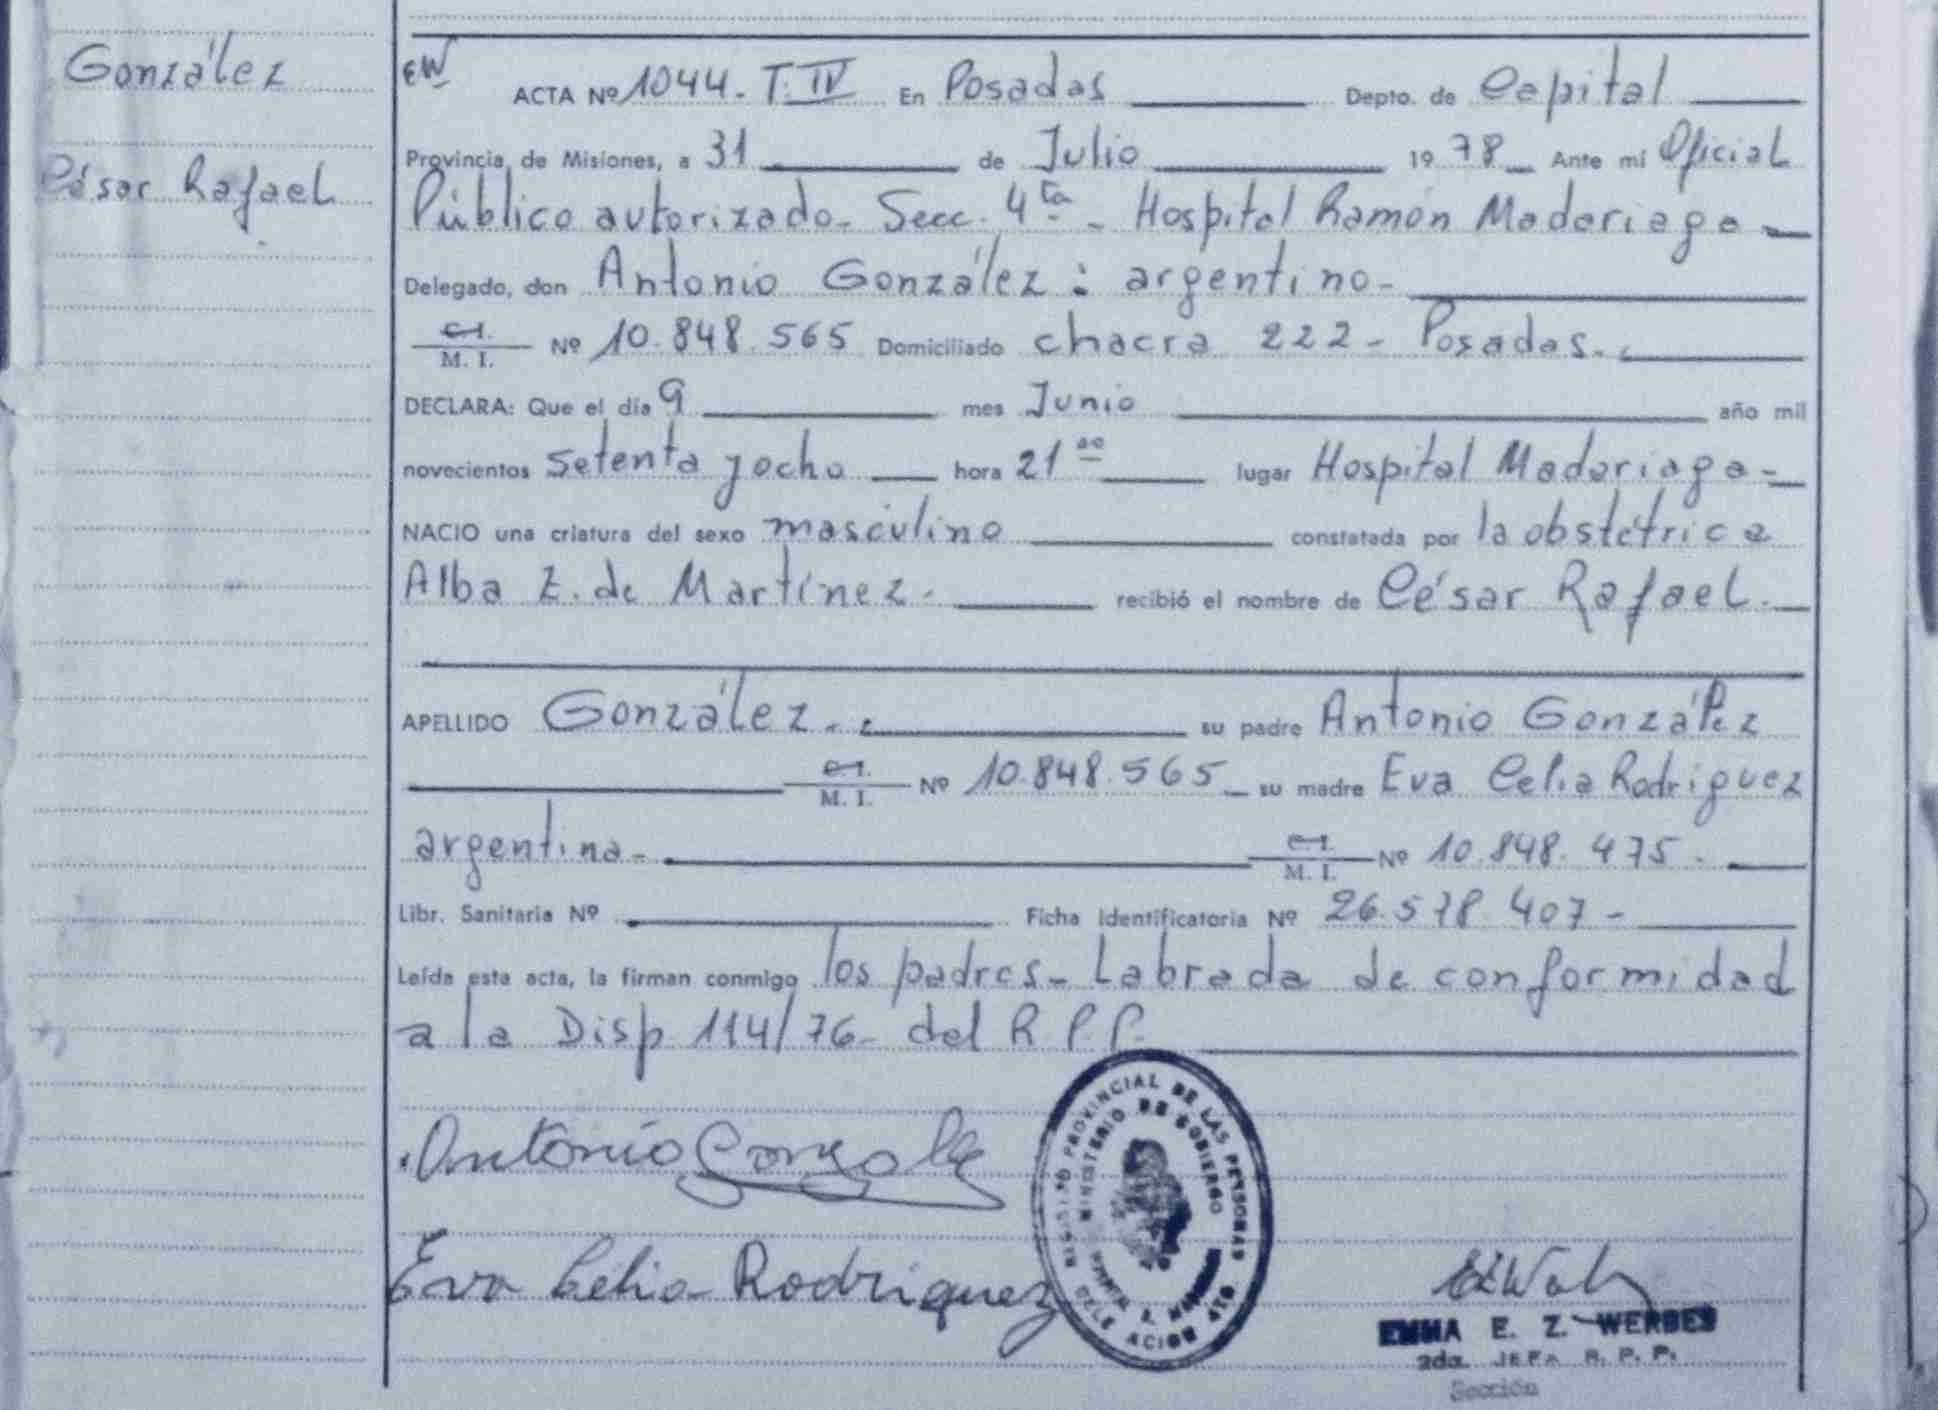 González
César Rafael
EW
ACTA Nº 1044. T. IV En Posadas Depto. de Capital
Provincia de Misiones, a 31 de Julio 1978 Ante mí Oficial
Público autorizado. Secc. 4ta - Hospital Ramón Madariaga
Delegado, don Antonio González : argentino-
C.I. M. I. Nº 10.848.565 Domiciliado chacra 222 - Posadas.
DECLARA: Que el día 9 mes Junio año mil
novecientos setenta y ocho hora 21 oo lugar Hospital Madariaga-
NACIO una criatura del sexo masculino constatada por la obstétrica
Alba Z. de Martínez. recibió el nombre de César Rafael.
APELLIDO González. su padre Antonio González
C.I. M. I. Nº 10.848.565 su madre Eva Celia Rodriguez
argentina- C.I. M. I. Nº 10.848.475.
Libr. Sanitaria Nº Ficha Identificatoria Nº 26.578.407-
Leída esta acta, la firman conmigo los padres- Labrada de conformidad
a la Disp 114/76- del R P P.
Antonio Gonzalez
Eva Celia Rodriguez
REGISTRO PROVINCIAL DE LAS PERSONAS
MINISTERIO DE GOBIERNO
DELEGACION 4TA
EMMA E. Z. WERBES
2da. JEFA R. P. P.
Sección